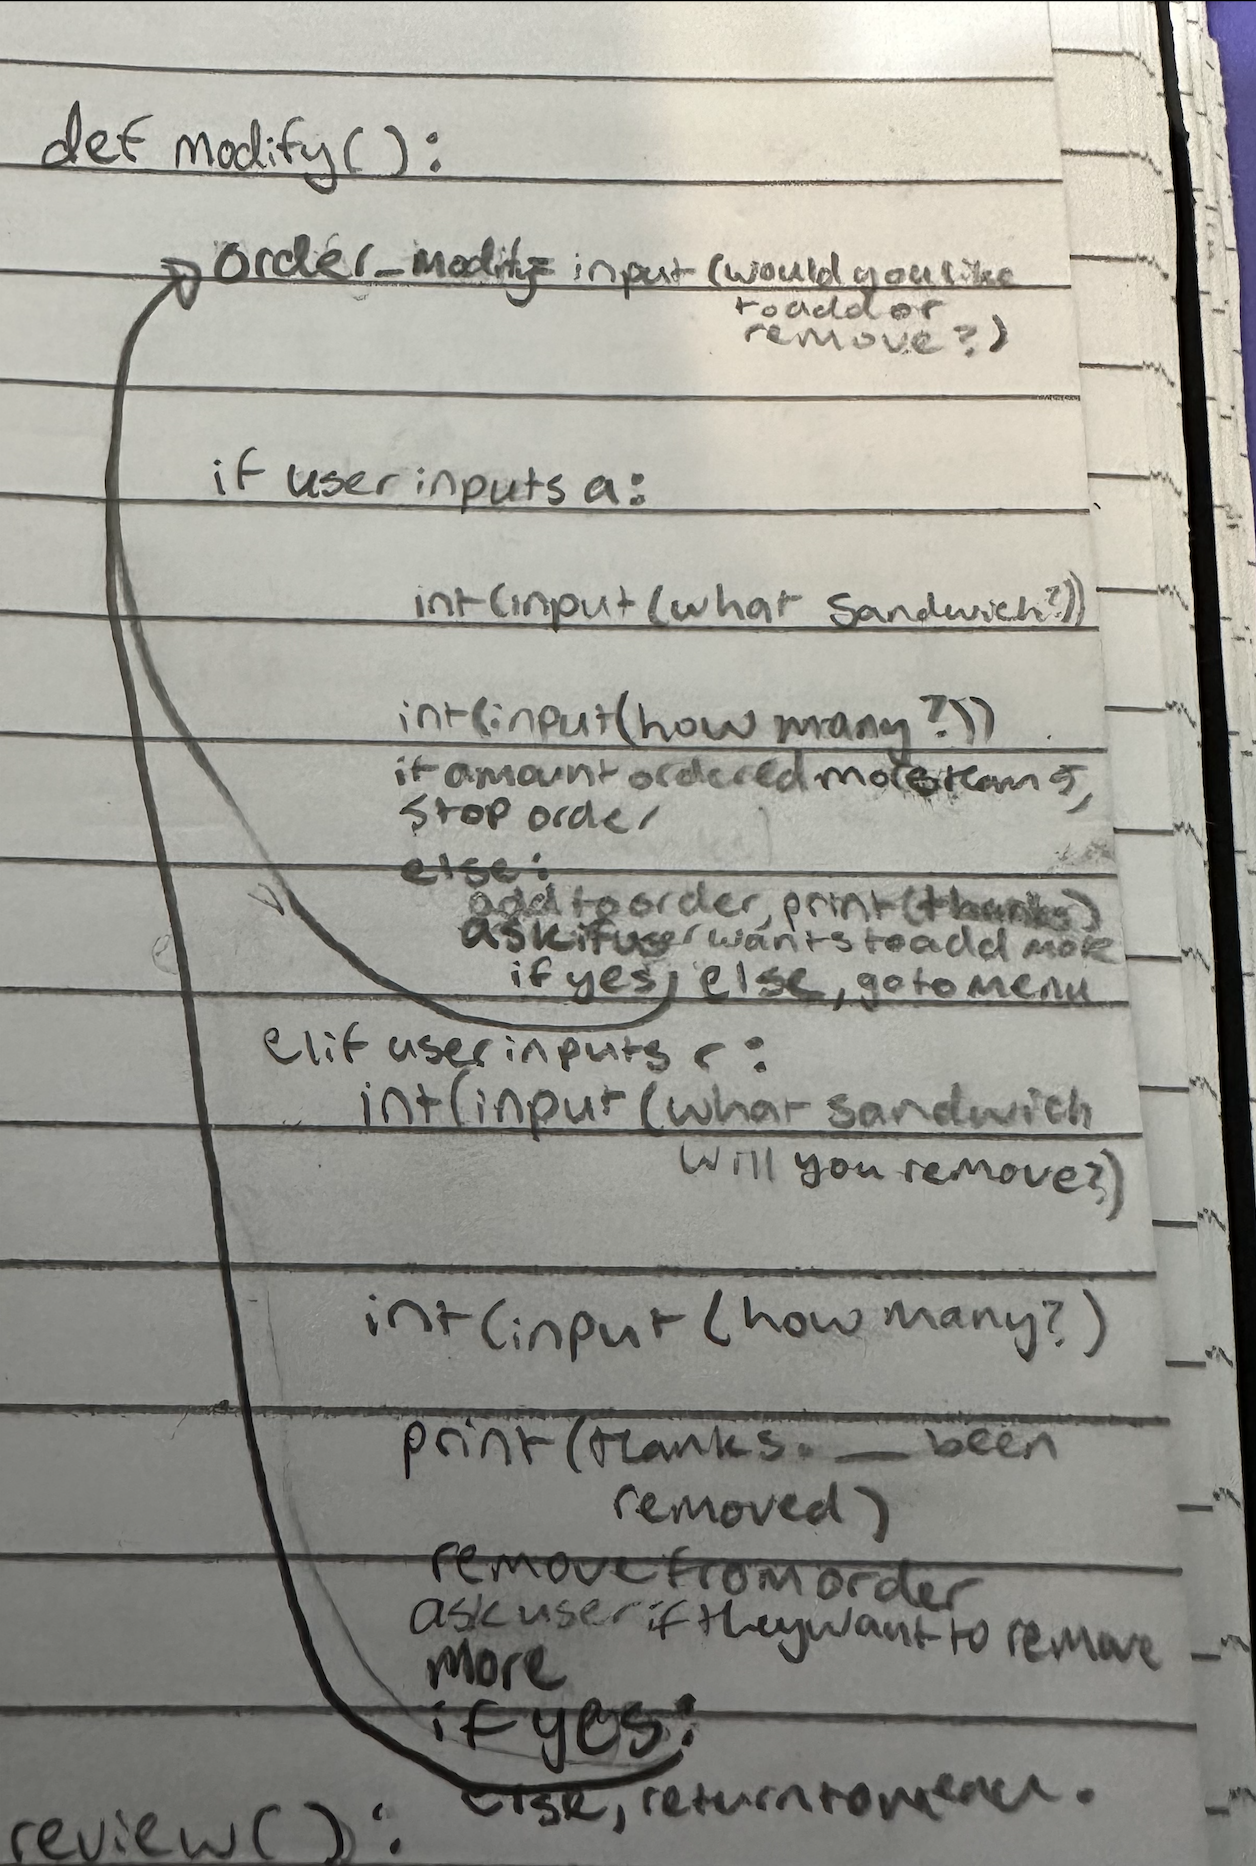 def modify():
order_modify= input (would you like
to add or
remove?)
if user inputs a:
int(input (what sandwich?))
int(input(how many?))
if amount ordered more than 5,
stop order
else:
add to order, print(thanks)
ask if user wants to add more
if yes, else, go to menu
elif user inputs r:
int(input (what sandwich
will you remove?)
int(input (how many?)
print(thanks. __ been
removed)
remove from order
ask user if they want to remove
more
if yes:
else, return to menu.
review():